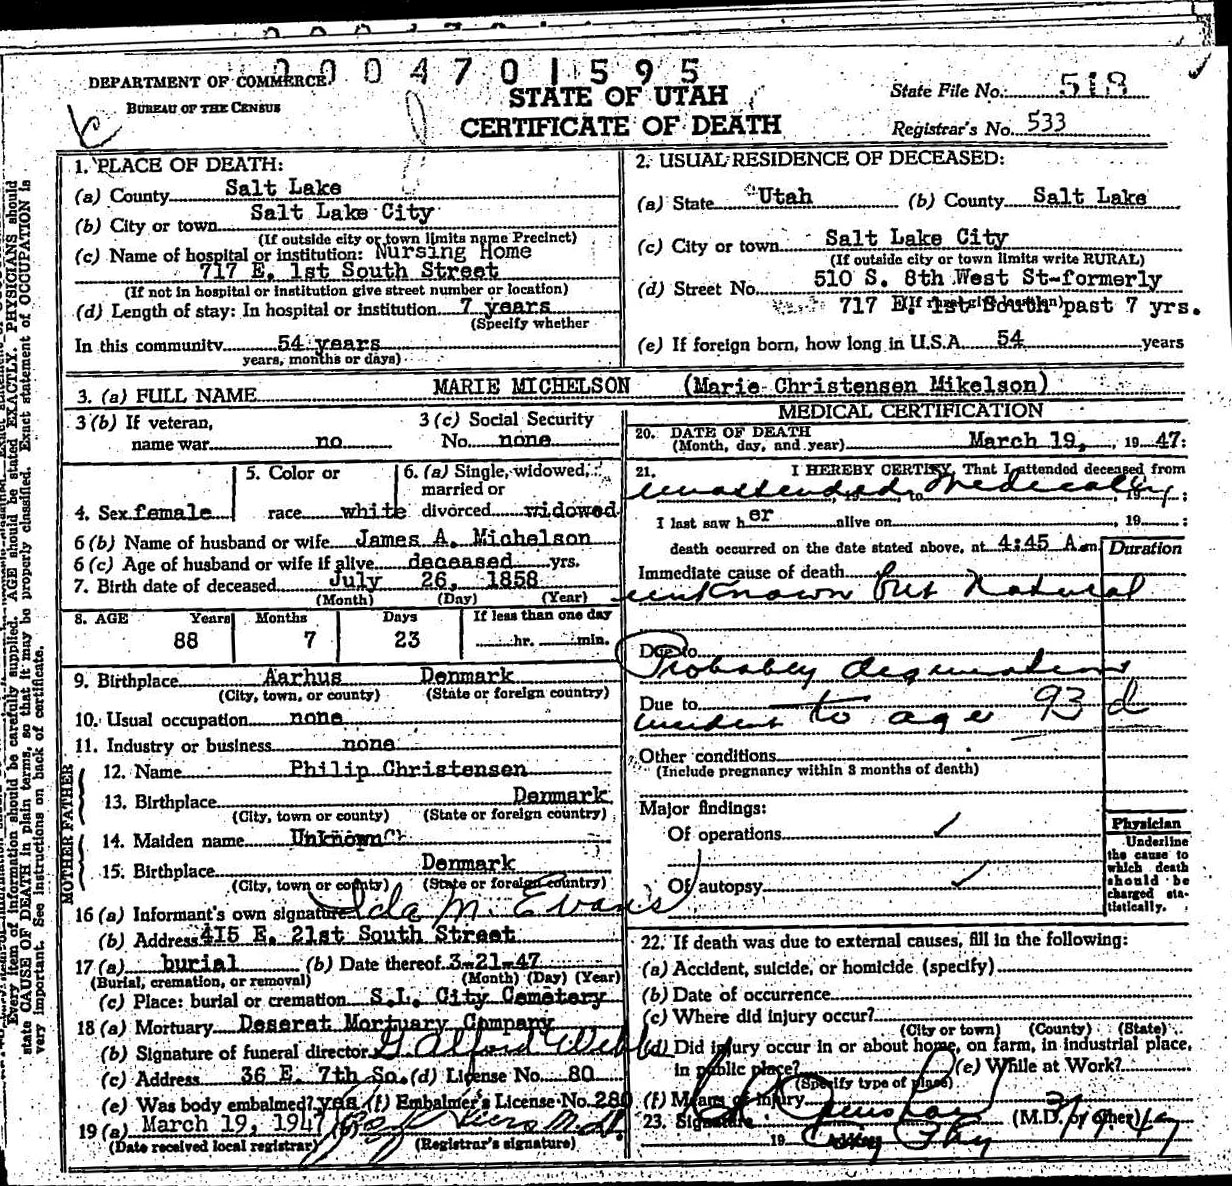 0004701595
DEPARTMENT OF COMMERCE
BUREAU OF THE CENSUS
STATE OF UTAH
CERTIFICATE OF DEATH
State File No. 518
Registrar's No. 533
1. PLACE OF DEATH:
(a) County Salt Lake
(b) City or town Salt Lake City
(If outside city or town limits name Precinct)
(c) Name of hospital or institution: Nursing Home
717 E. 1st South Street
(If not in hospital or institution give street number or location)
(d) Length of stay: In hospital or institution 7 years
(Specify whether
In this community 54 years
years, months or days)
2. USUAL RESIDENCE OF DECEASED:
(a) State Utah (b) County Salt Lake
(c) City or town Salt Lake City
(If outside city or town limits write RURAL)
(d) Street No. 510 S. 8th West St-formerly
717 E. 1st South past 7 yrs.
(e) If foreign born, how long in U.S.A. 54 years
3. (a) FULL NAME MARIE MICHELSON (Marie Christensen Mikelson)
3 (b) If veteran,
name war no
3 (c) Social Security
No. none
4. Sex female
5. Color or
race white
6. (a) Single, widowed,
married or
divorced widowed
6 (b) Name of husband or wife James A. Michelson
6 (c) Age of husband or wife if alive deceased yrs.
7. Birth date of deceased July 26, 1858
(Month) (Day) (Year)
8. AGE Years Months Days If less than one day
88 7 23 hr. min.
9. Birthplace Aarhus Denmark
(City, town, or county) (State or foreign country)
10. Usual occupation none
11. Industry or business none
FATHER
12. Name Philip Christensen
13. Birthplace Denmark
(City, town or county) (State or foreign country)
MOTHER
14. Maiden name Unknown
15. Birthplace Denmark
(City, town or county) (State or foreign country)
16 (a) Informant's own signature Ida M. Evans
(b) Address 415 E. 21st South Street
17 (a) burial (b) Date thereof 3-21-47
(Burial, cremation, or removal) (Month) (Day) (Year)
(c) Place: burial or cremation S.L. City Cemetery
18 (a) Mortuary Deseret Mortuary Company
(b) Signature of funeral director G Alford Webb
(c) Address 36 E. 7th So. (d) License No. 80
(e) Was body embalmed? yes (f) Embalmer's License No. 280
19 (a) March 19, 1947
(Date received local registrar) (Registrar's signature)
MEDICAL CERTIFICATION
20. DATE OF DEATH
(Month, day, and year) March 19, 1947:
21. I HEREBY CERTIFY, That I attended deceased from
unattended medically
I last saw her alive on , 19 ;
death occurred on the date stated above, at 4:45 A.m
Duration
Immediate cause of death
unknown but Natural
Due to
Probably degeneration
Due to
incident to age 93 d
Other conditions
(Include pregnancy within 3 months of death)
Major findings:
Of operations ✓
Of autopsy ✓
Physician
Underline
the cause to
which death
should be
charged sta-
tistically.
22. If death was due to external causes, fill in the following:
(a) Accident, suicide, or homicide (specify)
(b) Date of occurrence
(c) Where did injury occur?
(City or town) (County) (State)
(d) Did injury occur in or about home, on farm, in industrial place,
in public place? (e) While at Work?
(Specify type of place)
(f) Means of injury
23. Signature (M.D. or other) 3/19/47
19 Address City Phy
Every item of information should be carefully supplied. AGE should be stated EXACTLY. PHYSICIANS should
state CAUSE OF DEATH in plain terms, so that it may be properly classified. Exact statement of OCCUPATION is
very important. See instructions on back of certificate.